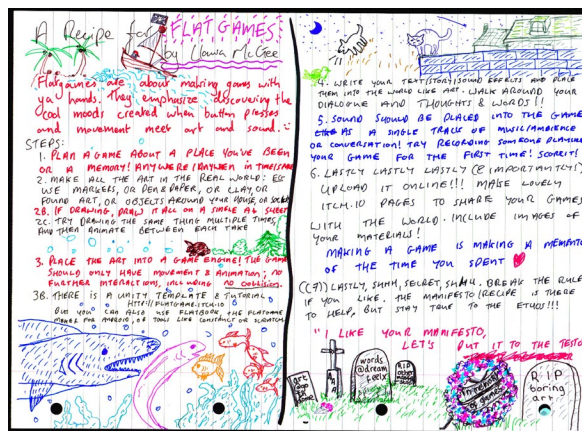 A Recipe for FLATGAMES!
by Llaura McGee
Flatgames are about making games with
ya hands. They emphasize discovering the
cool moods created when button presses
and movement meet art and sound. :)
STEPS:
1. PLAN A GAME ABOUT A PLACE YOU'VE BEEN
OR A MEMORY! ANYWHERE/ANYWHEN IN TIME/SPACE
2. MAKE ALL THE ART IN THE REAL WORLD: EG
USE MARKERS, OR PEN & PAPER, OR CLAY, OR
FOUND ART, OR OBJECTS AROUND YOUR HOUSE, OR SOCKS!
2B. IF DRAWING, DRAW IT ALL ON A SINGLE A4 SHEET
2C. TRY DRAWING THE SAME THING MULTIPLE TIMES,
AND THEN ANIMATE BETWEEN EACH TAKE
3. PLACE THE ART INTO A GAME ENGINE! THE GAME
SHOULD ONLY HAVE MOVEMENT & ANIMATION; NO
FURTHER INTERACTIONS, INCLUDING NO COLLISION.
3B. THERE IS A UNITY TEMPLATE & TUTORIAL
HTTP://FLATGAME.ITCH.IO
BUT YOU CAN ALSO USE FLATBOOK, THE FLATGAME
MAKER FOR ANDROID, OR TOOLS LIKE CONSTRUCT OR SCRATCH
4. WRITE YOUR TEXT/STORY/SOUND EFFECTS AND PLACE
THEM INTO THE WORLD LIKE ART. WALK AROUND YOUR
DIALOGUE AND THOUGHTS & WORDS!!
5. SOUND SHOULD BE PLACED INTO THE GAME
AS A SINGLE TRACK OF MUSIC/AMBIENCE
OR CONVERSATION! TRY RECORDING SOMEONE PLAYING
YOUR GAME FOR THE FIRST TIME! SCORE IT!
6. LASTLY LASTLY LASTLY (& IMPORTANTLY!)
UPLOAD IT ONLINE!!! MAKE LOVELY
ITCH.IO PAGES TO SHARE YOUR GAMES
WITH THE WORLD. INCLUDE IMAGES OF
YOUR MATERIALS!
MAKING A GAME IS MAKING A MEMENTO
OF THE TIME YOU SPENT
((7)) LASTLY, SHHH, SECRET, SHHH. BREAK THE RULES
IF YOU LIKE. THE MANIFESTO/RECIPE IS THERE
TO HELP, BUT STAY TRUE TO THE ETHOS!!!
"I LIKE YOUR MANIFESTO,
LET'S PUT IT TO THE TESTO
words
@dream
feelx
R.I.P
other
R.I.P
boring
art.